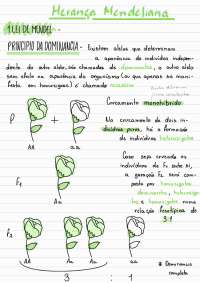 Herança Mendeliana
1ª LEI DE MENDEL
PRINCÍPIO DA DOMINÂNCIA - Existem alelos que determinam
a aparência do indivíduo indepen-
dente do outro alelo, são chamados de dominantes, o outro alelo
sem efeito na aparência do organismo (ou que apenas se mani-
festa em homozigose) é chamado recessivo
Cruzamento monohíbrido
P
AA
aa
No cruzamento de dois in-
divíduos puros, há a formação
de indivíduos heterozigotos
F1
Aa
Caso seja cruzado os
indivíduos de F1 entre si,
a geração F2 será com-
posta por homozigotos
dominantes, heterozigo-
tos e homozigotos numa
relação fenotípica de
3:1
F2
AA
Aa
Aa
aa
3 : 1
* Dominância
completa